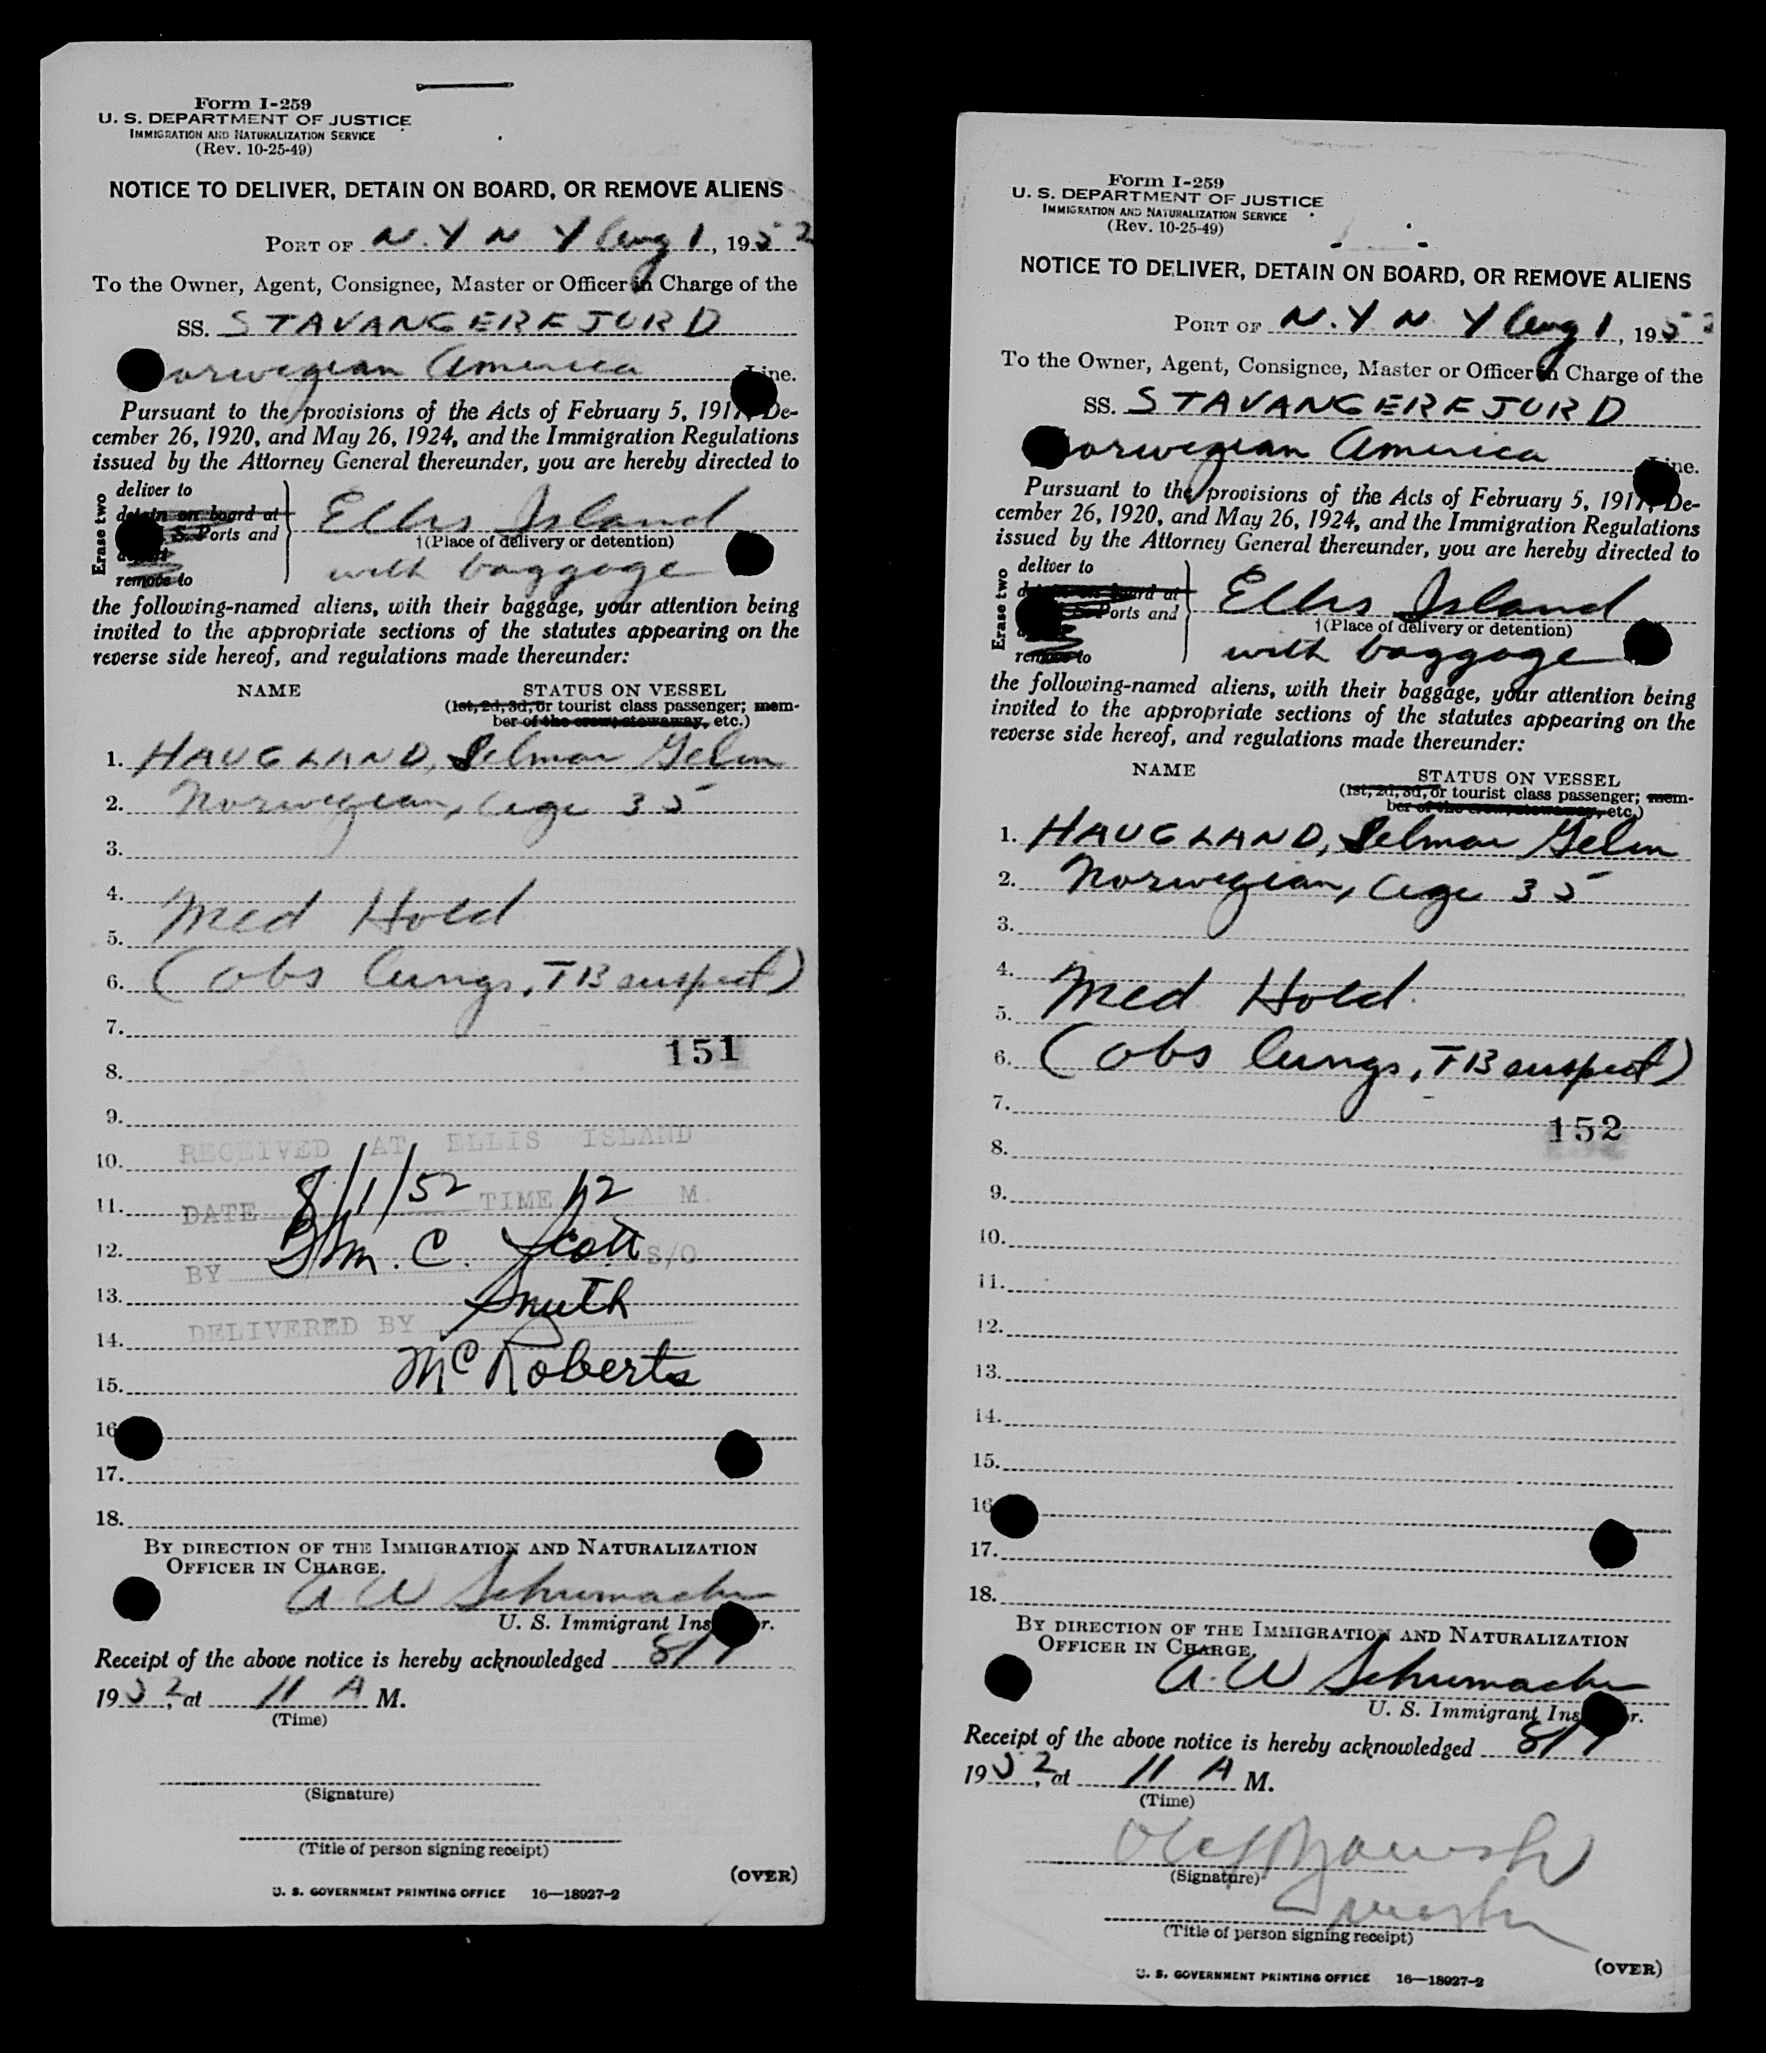 Form I-259
U. S. DEPARTMENT OF JUSTICE
IMMIGRATION AND NATURALIZATION SERVICE
(Rev. 10-25-49)
NOTICE TO DELIVER, DETAIN ON BOARD, OR REMOVE ALIENS
PORT OF N.Y N Y Aug 1, 1952
To the Owner, Agent, Consignee, Master or Officer in Charge of the
SS. STAVANGERFJORD
Norwegian America Line.
Pursuant to the provisions of the Acts of February 5, 1917, De-
cember 26, 1920, and May 26, 1924, and the Immigration Regulations
issued by the Attorney General thereunder, you are hereby directed to
Erase two
deliver to
detain on board at
S. Ports and
remove to
Ellis Island
†(Place of delivery or detention)
with baggage
the following-named aliens, with their baggage, your attention being
invited to the appropriate sections of the statutes appearing on the
reverse side hereof, and regulations made thereunder:
NAME STATUS ON VESSEL
(1st, 2d, 3d, or tourist class passenger; mem-
ber of the crew, stowaway, etc.)
1. HAUGLAND, Selmar
2. Norwegian, age 35
3.
4.
5. Med Hold
6. (obs lungs, TB suspect)
7.
151
8.
9.
RECEIVED AT ELLIS ISLAND
10.
11. DATE 8/1/52 TIME 12 M.
12. BY Wm. C. Scott S/O
13. Smith
14. DELIVERED BY
McRoberts
15.
16
17.
18.
BY DIRECTION OF THE IMMIGRATION AND NATURALIZATION
OFFICER IN CHARGE.
A W Schumacher
U. S. Immigrant Inspector.
Receipt of the above notice is hereby acknowledged 8/1
1952, at 11 A M.
(Time)
(Signature)
(Title of person signing receipt)
(OVER)
U. S. GOVERNMENT PRINTING OFFICE 16—18927-2
Form I-259
U. S. DEPARTMENT OF JUSTICE
IMMIGRATION AND NATURALIZATION SERVICE
(Rev. 10-25-49)
NOTICE TO DELIVER, DETAIN ON BOARD, OR REMOVE ALIENS
PORT OF N.Y N Y Aug 1, 1952
To the Owner, Agent, Consignee, Master or Officer in Charge of the
SS. STAVANGERFJORD
Norwegian America Line.
Pursuant to the provisions of the Acts of February 5, 1917, De-
cember 26, 1920, and May 26, 1924, and the Immigration Regulations
issued by the Attorney General thereunder, you are hereby directed to
Erase two
deliver to
detain on board at
S. Ports and
remove to
Ellis Island
†(Place of delivery or detention)
with baggage
the following-named aliens, with their baggage, your attention being
invited to the appropriate sections of the statutes appearing on the
reverse side hereof, and regulations made thereunder:
NAME STATUS ON VESSEL
(1st, 2d, 3d, or tourist class passenger; mem-
ber of the crew, stowaway, etc.)
1. HAUGLAND, Selmar
2. Norwegian, age 35
3.
4.
5. Med Hold
6. (obs lungs, TB suspect)
7.
152
8.
9.
10.
11.
12.
13.
14.
15.
16
17.
18.
BY DIRECTION OF THE IMMIGRATION AND NATURALIZATION
OFFICER IN CHARGE.
A. W Schumacher
U. S. Immigrant Inspector.
Receipt of the above notice is hereby acknowledged 8/1
1952, at 11 A M.
(Time)
(Signature)
(Title of person signing receipt)
(OVER)
U. S. GOVERNMENT PRINTING OFFICE 16—18927-2